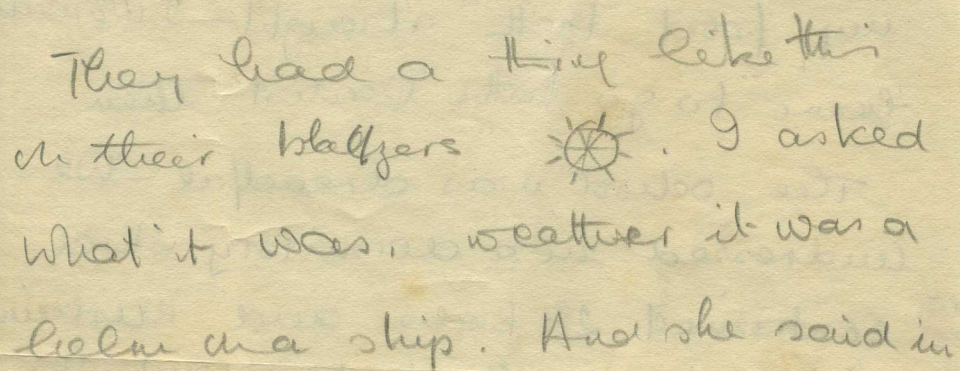 They had a thing like this
on their blazers . I asked
what it was, weather it was a
helm on a ship. And she said in